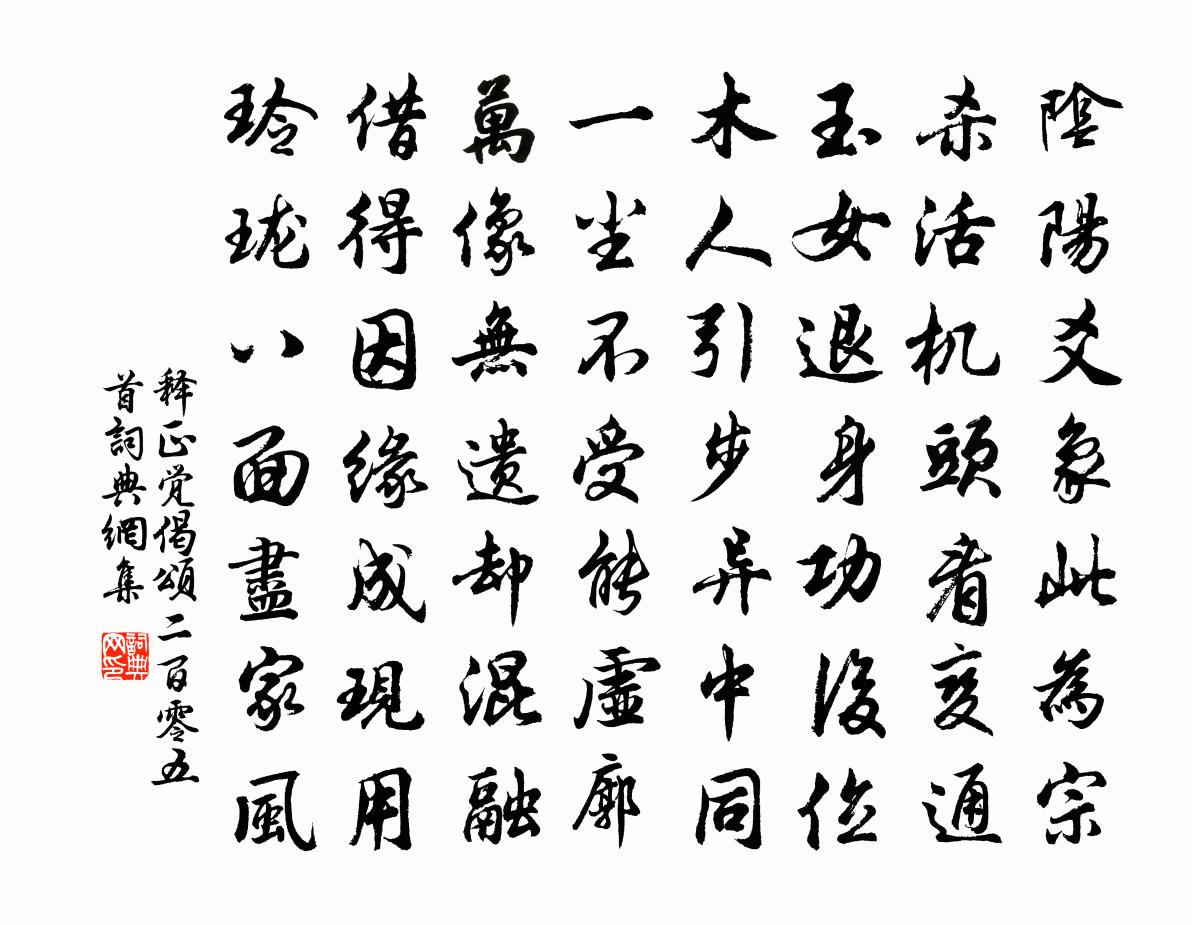 陰陽爻象此為宗
杀活机頭看变通
玉女退身功後位
木人引步异中同
一尘不受能虛廓
萬像無遗却混融
借得因缘成現用
玲珑八面盡家風
释正觉偈頌二百零五
首詞典網集
詞典网印